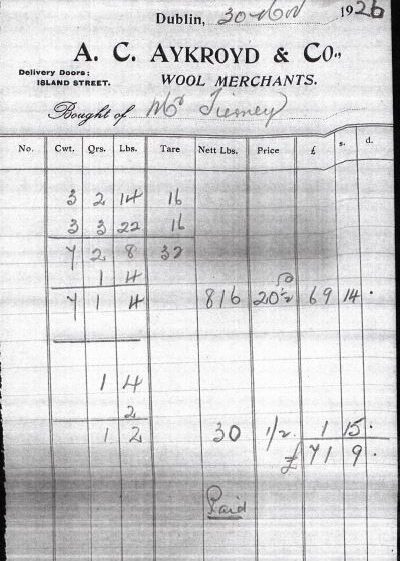 Dublin, 30 Nov 1926
A. C. AYKROYD & Co.,
Delivery Doors:
ISLAND STREET.
WOOL MERCHANTS.
Bought of Mr Tierney
No. Cwt. Qrs. Lbs. Tare Nett Lbs. Price £ s. d.
3 2 14 16
3 3 22 16
7 2 8 32
1 4
7 1 4 816 20½ 69 14 .
1 4
2
1 2 30 1/2 1 15 .
£ 71 9 .
Paid